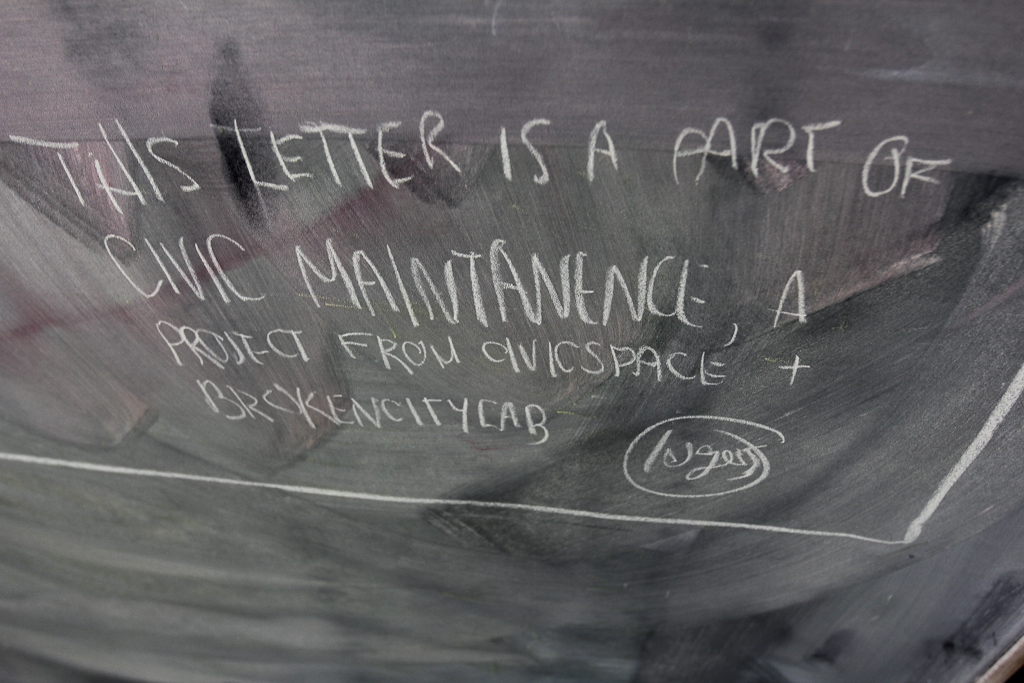 THIS LETTER IS A PART OF
CIVIC MAINTANENCE, A
PROJECT FROM CIVICSPACE +
BROKENCITYLAB